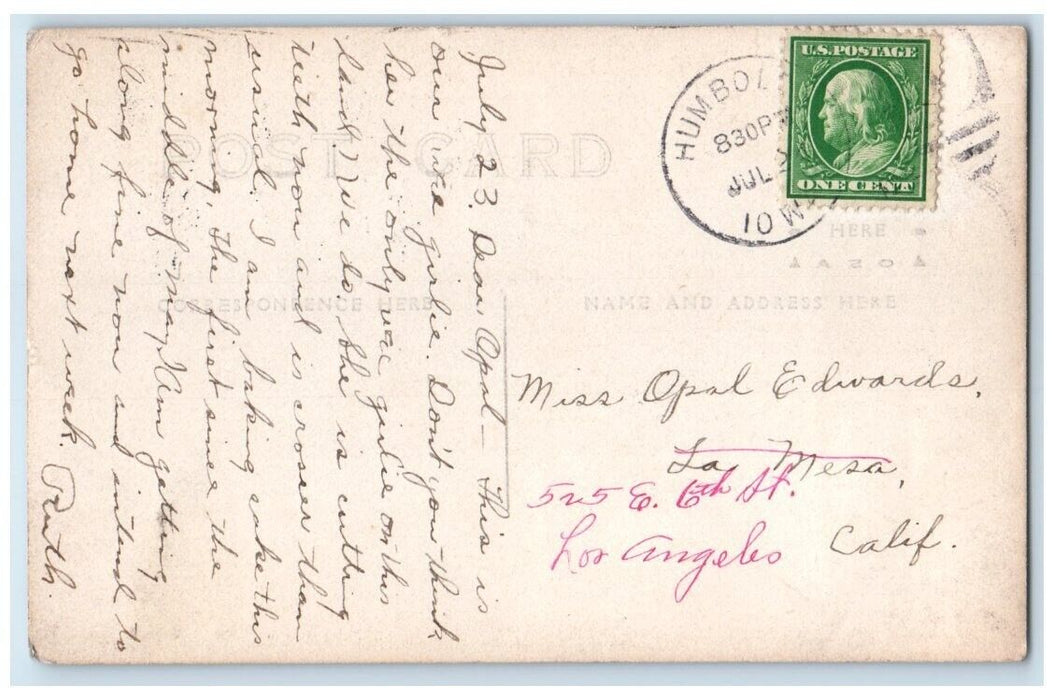 July 23. Dear Opal — This is
our wee girlie. Don't you think
her the only wee girlie on this
land? We do. She is cutting
teeth now and is crosser than
usual. I am baking cake this
morning, the first since the
middle of May. Am getting
along fine now and intend to
go home next week. Ruth.
POST CARD
CORRESPONDENCE HERE
NAME AND ADDRESS HERE
HUMBOL
830P
JUL
10
U.S. POSTAGE
ONE CENT
HERE
AZO
Miss Opal Edwards,
La Mesa,
525 E. 6th St.
Los Angeles
Calif.